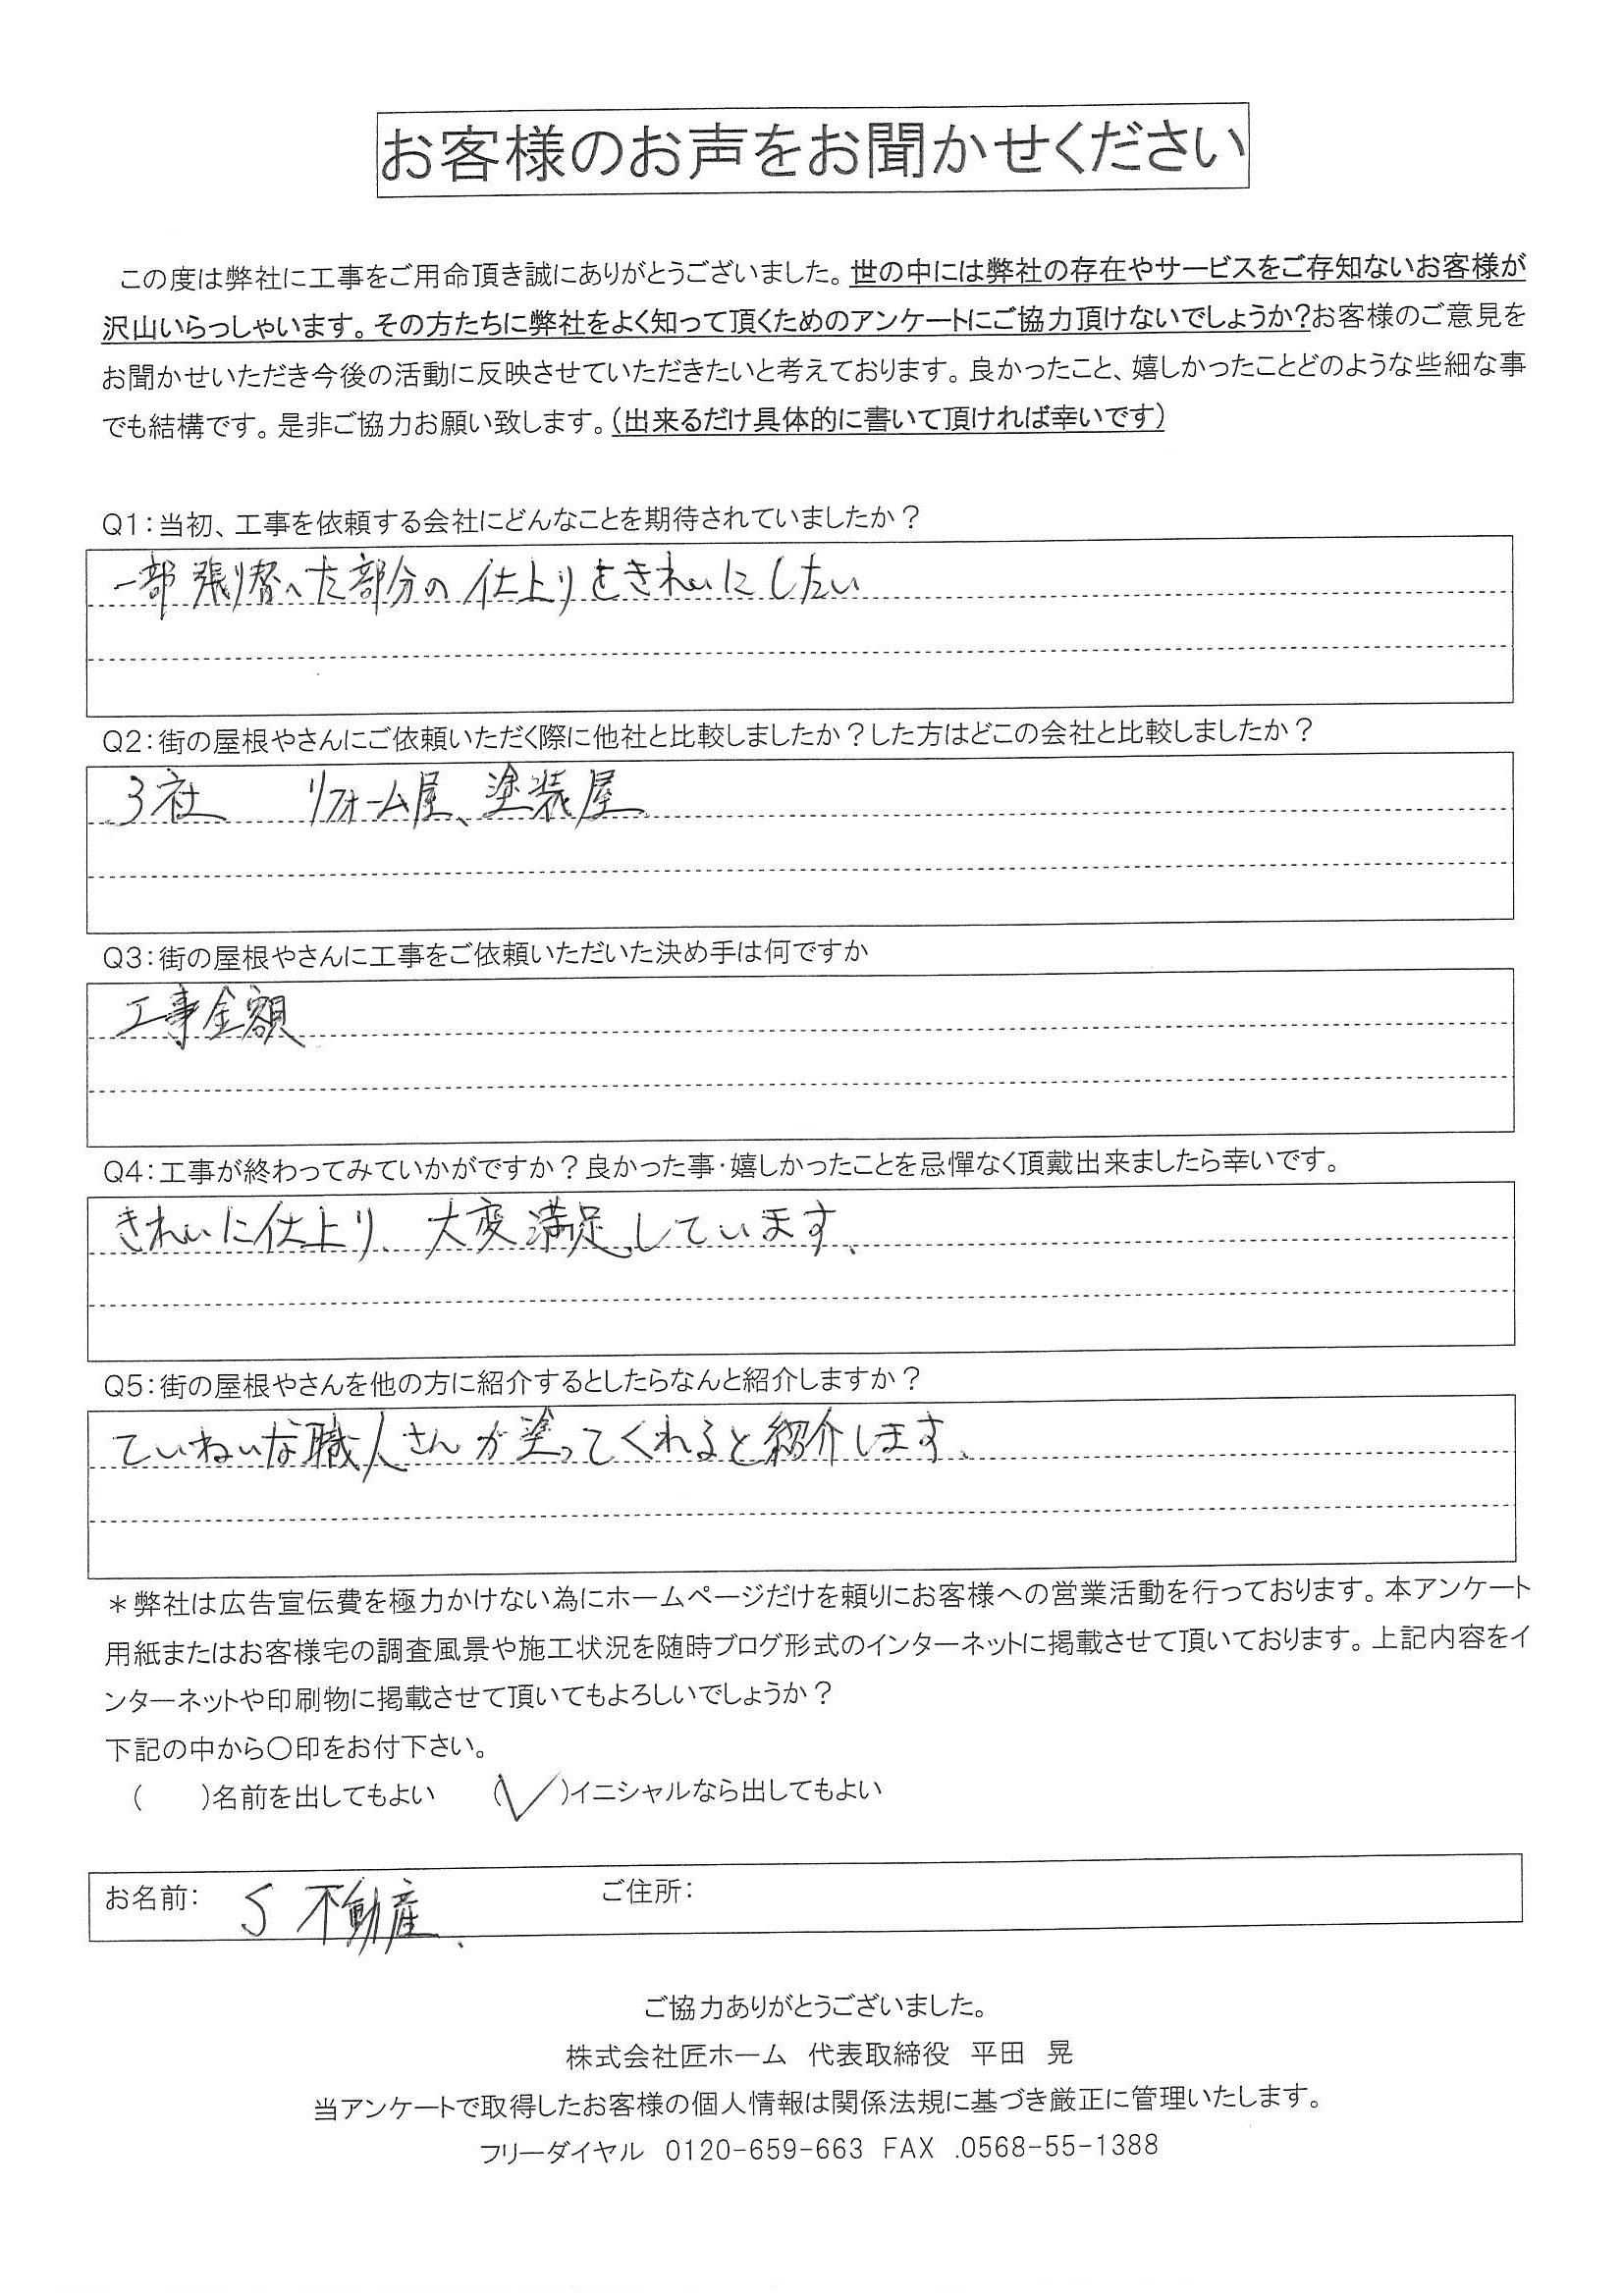 お客様のお声をお聞かせください
この度は弊社に工事をご用命頂き誠にありがとうございました。世の中には弊社の存在やサービスをご存知ないお客様が
沢山いらっしゃいます。その方たちに弊社をよく知って頂くためのアンケートにご協力頂けないでしょうか?お客様のご意見を
お聞かせいただき今後の活動に反映させていただきたいと考えております。良かったこと、嬉しかったことどのような些細な事
でも結構です。是非ご協力お願い致します。(出来るだけ具体的に書いて頂ければ幸いです)
Q1:当初、工事を依頼する会社にどんなことを期待されていましたか?
一部張り替へた部分の仕上りをきれいにしたい
Q2:街の屋根やさんにご依頼いただく際に他社と比較しましたか?した方はどこの会社と比較しましたか?
3社 リフォーム屋、塗装屋
Q3:街の屋根やさんに工事をご依頼いただいた決め手は何ですか
工事金額
Q4:工事が終わってみていかがですか?良かった事・嬉しかったことを忌憚なく頂戴出来ましたら幸いです。
きれいに仕上り、大変満足しています。
Q5:街の屋根やさんを他の方に紹介するとしたらなんと紹介しますか?
ていねいな職人さんが塗ってくれると紹介します。
＊弊社は広告宣伝費を極力かけない為にホームページだけを頼りにお客様への営業活動を行っております。本アンケート
用紙またはお客様宅の調査風景や施工状況を随時ブログ形式のインターネットに掲載させて頂いております。上記内容をイ
ンターネットや印刷物に掲載させて頂いてもよろしいでしょうか?
下記の中から○印をお付下さい。
( )名前を出してもよい (✓)イニシャルなら出してもよい
お名前: S 不動産. ご住所:
ご協力ありがとうございました。
株式会社匠ホーム 代表取締役 平田 晃
当アンケートで取得したお客様の個人情報は関係法規に基づき厳正に管理いたします。
フリーダイヤル 0120-659-663 FAX .0568-55-1388